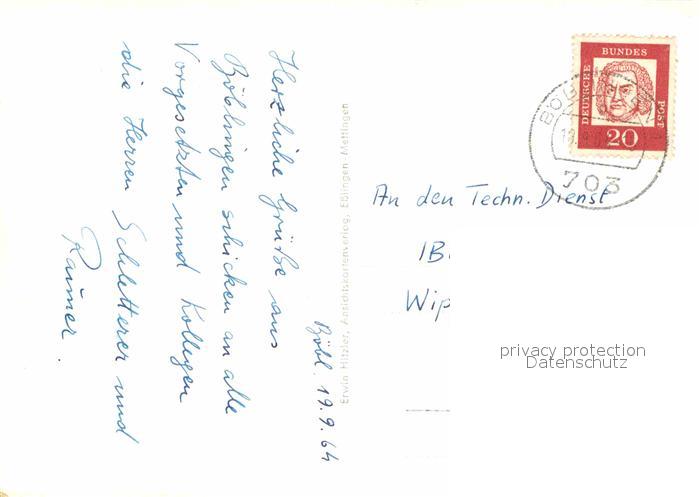 Böbl. 19.9.64
Herzliche Grüße aus
Böblingen schicken an alle
Vorgesetzten und Kollegen
die Herren Schletterer und
Raimer.
Erwin Hitzler, Ansichtskartenverlag, Eßlingen-Mettingen
DEUTSCHE
BUNDES
POST
20
703
An den Techn. Dienst
IB
Wip
privacy protection
Datenschutz